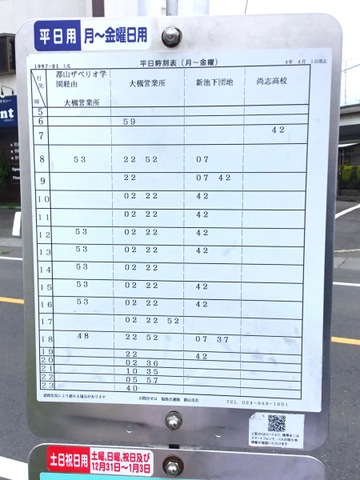 平日用 月～金曜日用
1997-01 上り 平日時刻表（月～金曜） 4年 4月 1日改正
行先 時 郡山ザベリオ学園経由 大槻営業所 大槻営業所 新池下団地 尚志高校
5
6 59
7 42
8 53 22 52 07
9 22 07 42
10 02 22 42
11 02 22 42
12 53 02 22 42
13 53 02 22 42
14 53 02 22
15 53 02 22 42
16 53 02 22 42
17 02 22 52
18 48 22 52 07 37
19 22 42
20 02 36
21 10 35
22 05 57
23 40
道路状況により遅れる場合があります お問合わせ 福島交通㈱ 郡山支社 TEL 024-943-1651
土日祝日用 土曜、日曜、祝日及び
12月31日～1月3日